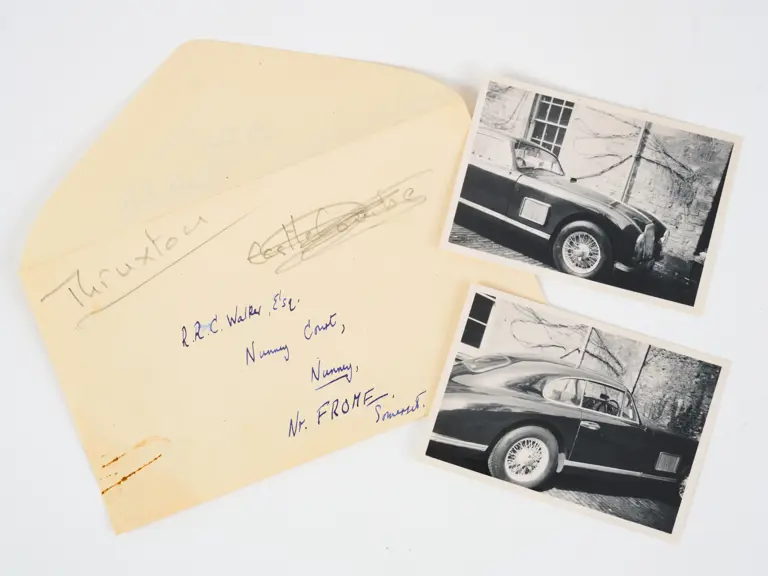 Thruxton
R.R.C. Walker, Esq.
Nunney Court,
Nunney,
Nr. FROME,
Somerset.